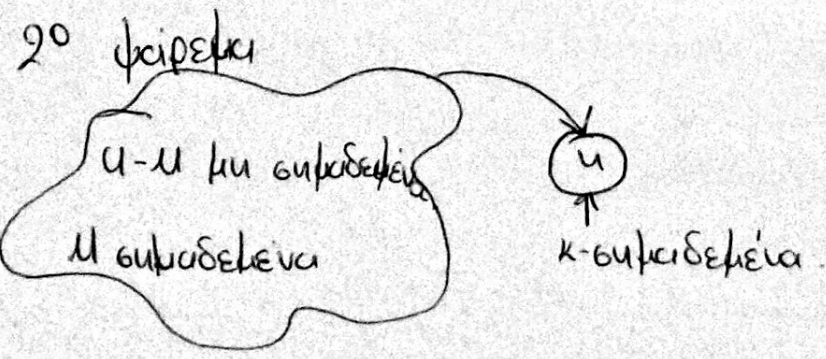 2º ψάρεμα
Ν-Μ μη σημαδεμένα
n
Μ σημαδεμενα
κ-σημαδεμένα